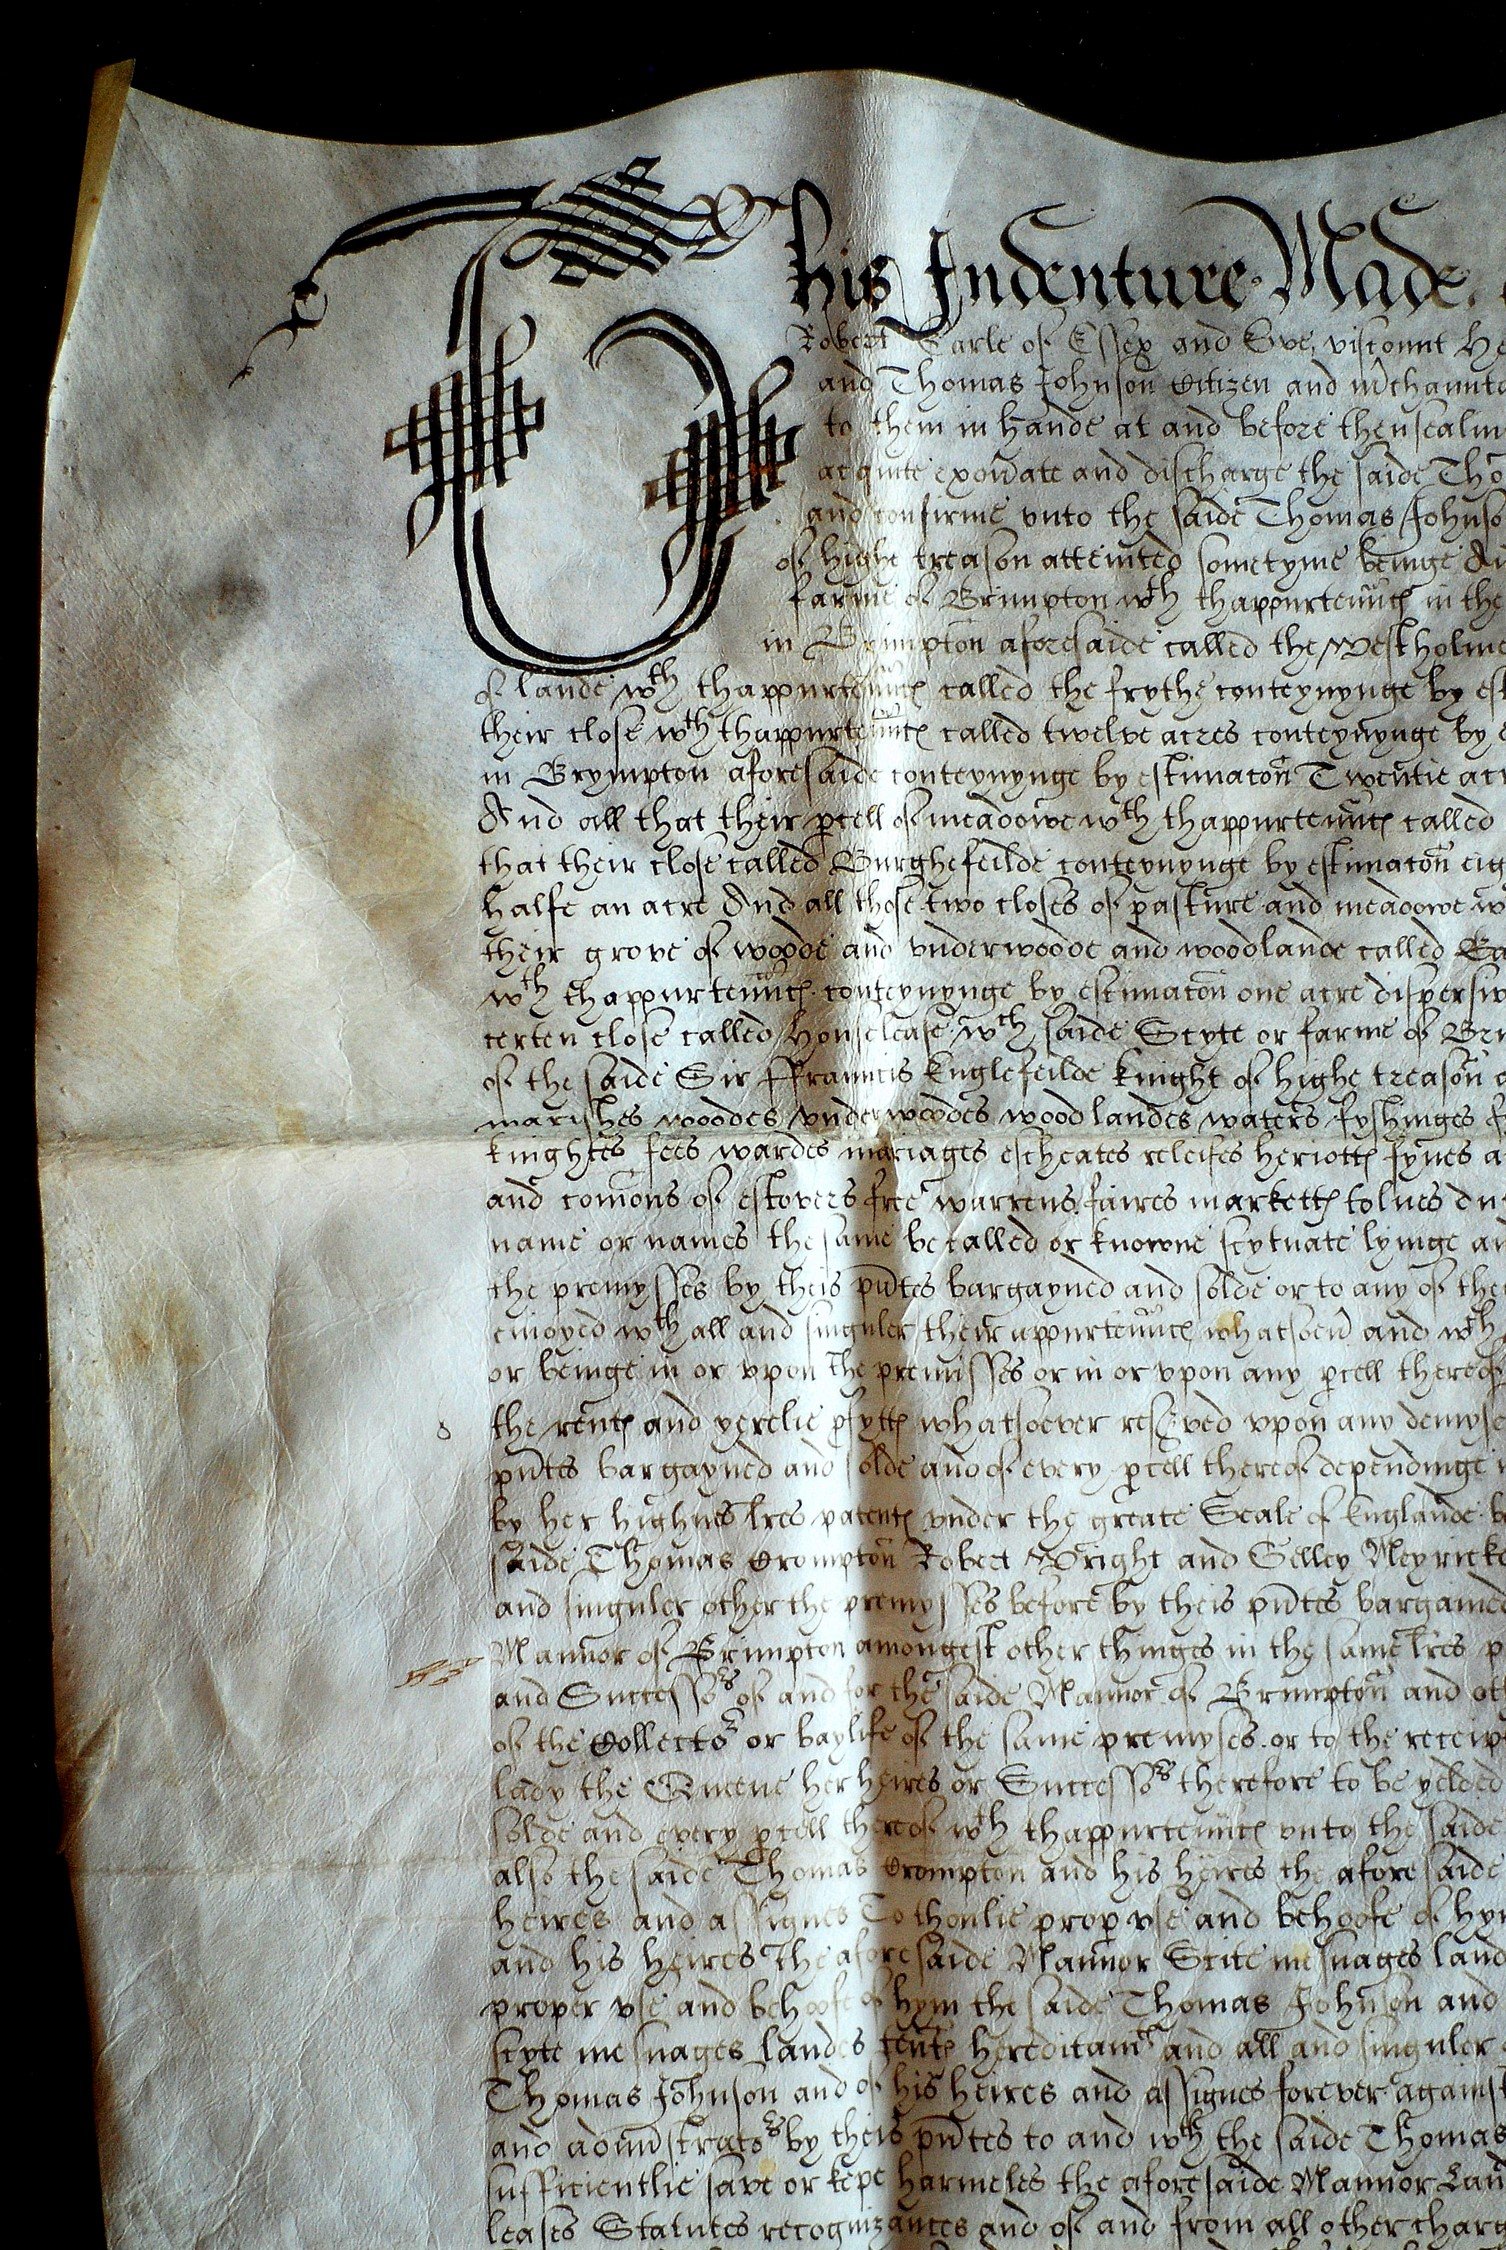 This Indenture Made
Robert Earle of Essex and Ewe viscount He
and Thomas Johnson Citizen and m̃chaunt
to them in hande at and before thensealin
acquite exoñate and discharge the saide Tho
and confirme vnto the saide Thomas Johnso
of highe treason atteinted sometyme beinge
farme of Brimpton wth thappurteñnc̃ in the
in Brimpton aforesaide called the Westholme
of lande wth thappurteñnc̃ called the frythe conteynynge by est
their close wth thappurteñnc̃ called twelve acres conteynynge by
in Brympton aforesaide conteynynge by estimacõn Twentie acr
And all that their p̱cell of meadowe wth thappurteñnc̃ called
that their close called Burghefeilde conteynynge by estimacõn eig
halfe an acre And all those two closes of pasture and meadowe w
their grove of woode and vnderwoode and woodlande called
wth thappurteñnc̃ conteynynge by estimacõn one acre
certen close called wth saide Scyte or farme of Bri
of the saide Sir ffrauncis Englefeilde knight of highe treason
marishes woodes vnderwoodes woodlandes waters fyshinges
knightes fees wardes mariages escheates releifes heriott℮ fynes a
and comõns of estovers free warrens faires markett℮ tolnes
name or names the same be called or knowne scytuate lyinge an
the premysses by theis pñtes bargayned and solde or to any of the
enioyed wth all and singuler their appurteñnc̃ whatsoeũ and wth
or beinge in or vpon the premisses or in or vpon any p̱cell thereof
the rent℮ and yerelie p̱fytt℮ whatsoever res̃ved vpon any demyse
pñtes bargayned and solde and of every p̱cell thereof dependinge
by her highnes lr̃es patent℮ vnder the greate Seale of Englande
saide Thomas Crompton Robert Wright and Gelley Meyricke
and singuler other the premysses before by theis pñtes bargained
Mannor of Brimpton amongest other thinges in the same lr̃es p
and Successors of and for the saide Mannor of Brimpton and oth
of the Collector or baylife of the same premyses or to the receip
lady the Queene her heires or Successors therefore to be yelded
solde and every p̱cell thereof wth thappurteñnc̃ vnto the saide
also the saide Thomas Crompton and his heires the aforesaide
heires and assignes To thonlie prop̱ vse and behoofe of hym
and his heires the aforesaide Mannor Scite mesuages land
proper vse and behoofe of hym the saide Thomas Johnson and
scyte mesuages landes teñt℮ hereditamt℮ and all and singuler
Thomas Johnson and of his heires and assignes forever against
and admĩstrators by theis pñtes to and wth the saide Thomas
sufficientlie save or kepe harmeles the aforesaide Mannor Lan
leases Statutes recognizances and of and from all other charg